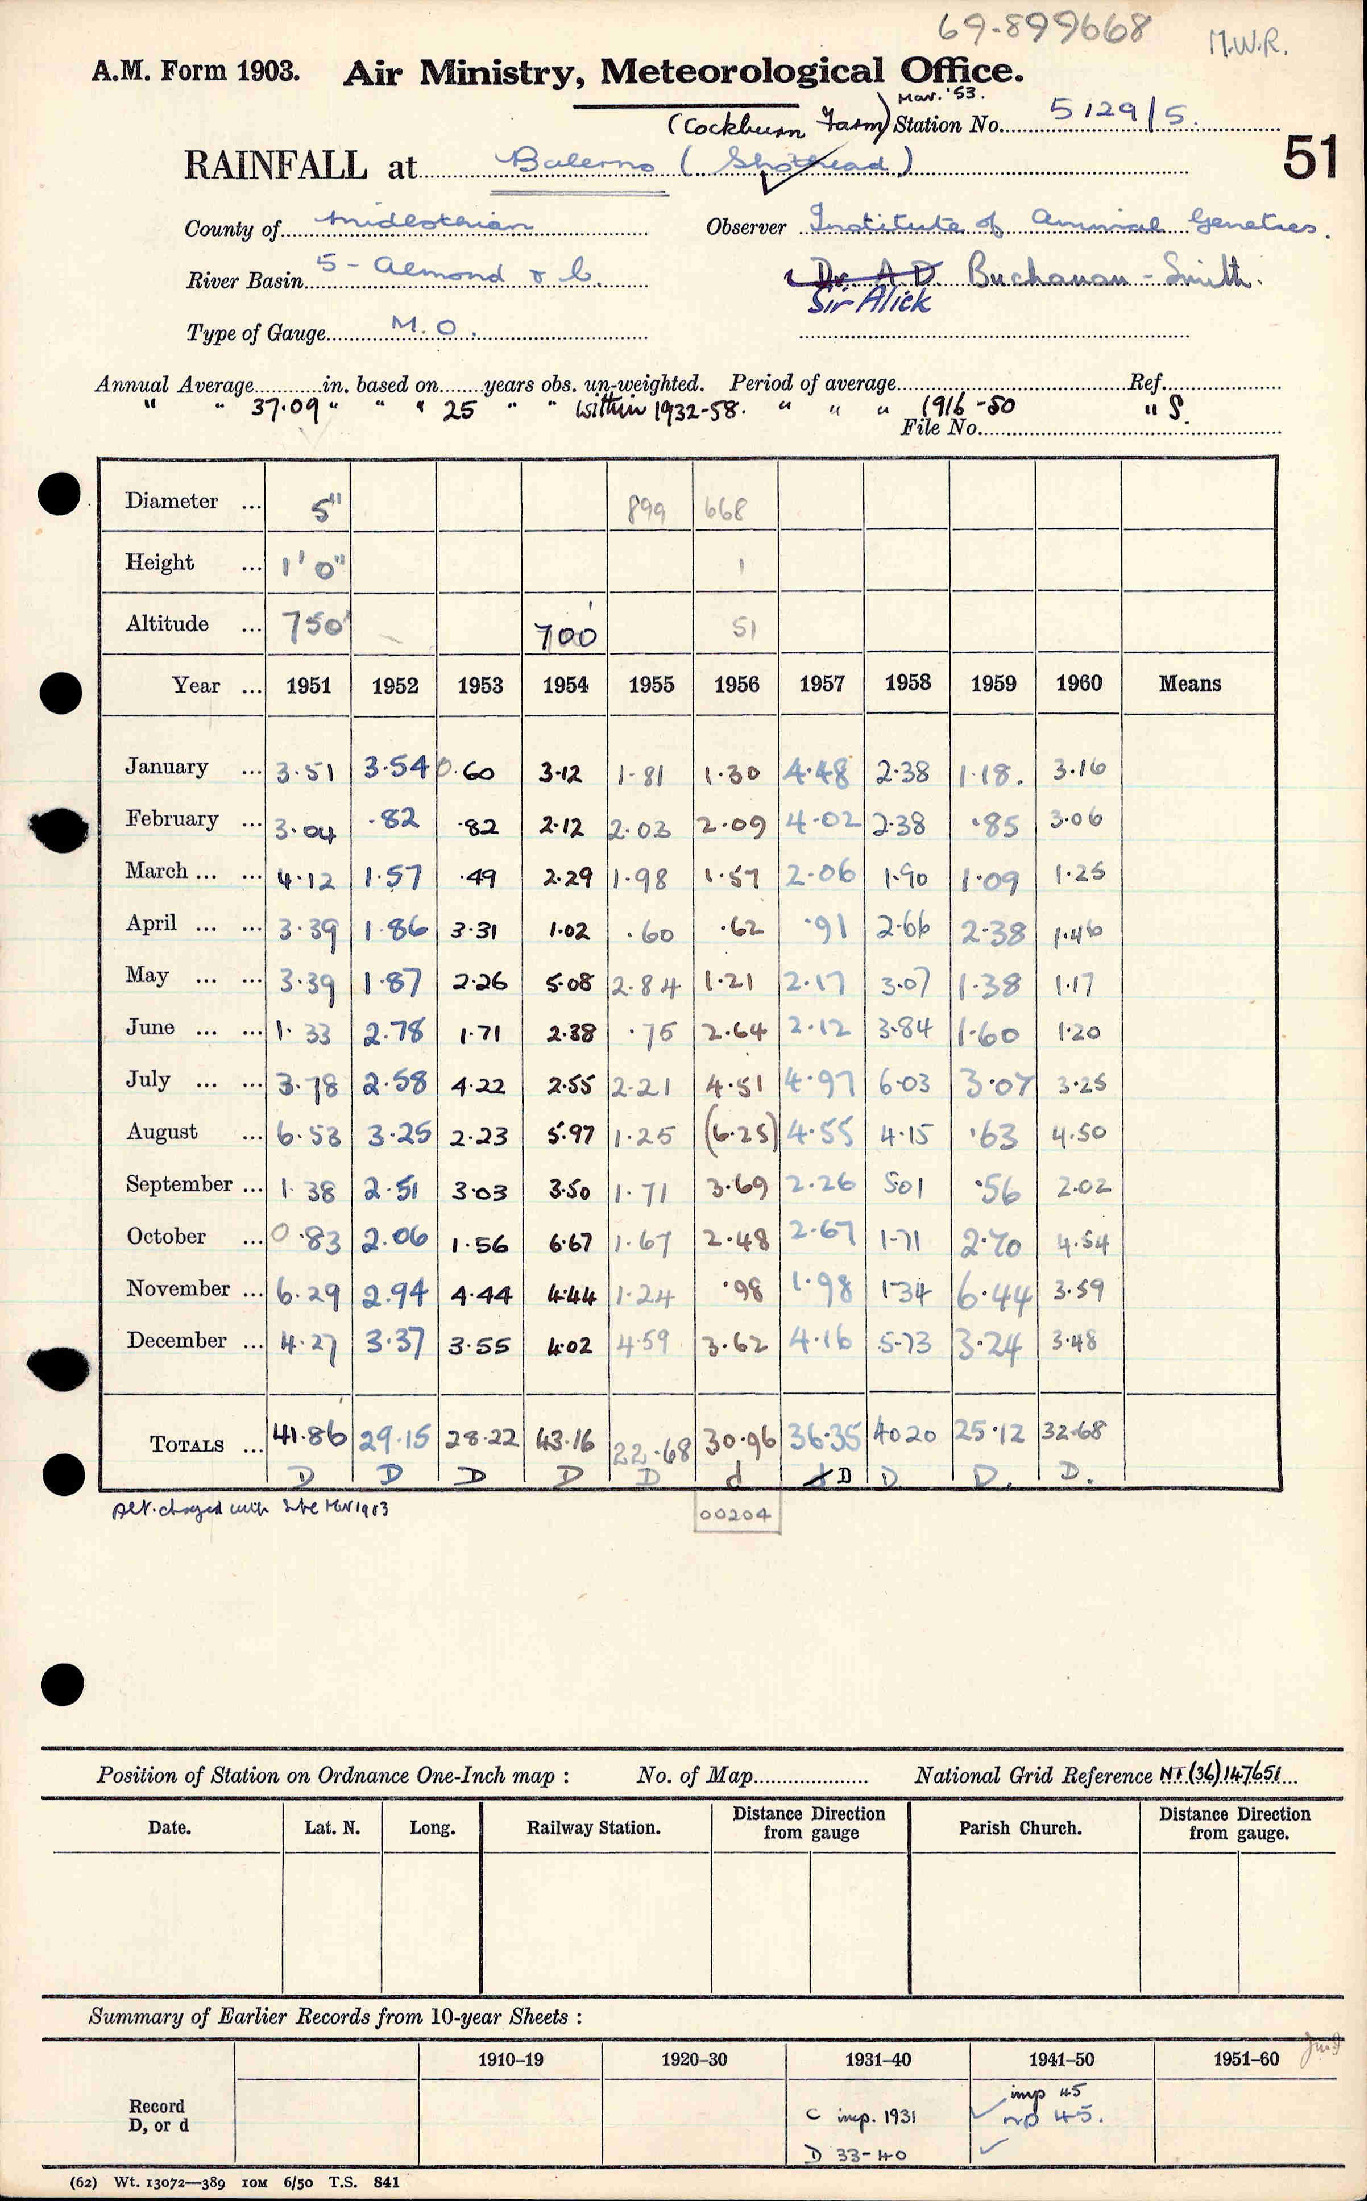 69-899668 M.W.R.
A.M. Form 1903. Air Ministry, Meteorological Office.
(Cockburn Farm) Mar. '53. Station No. 5129/5.
RAINFALL at Balerno (Shothead) 51
County of Midlothian Observer Institute of Animal Genetics.
River Basin 5 - Almond & c. Dr. A D. Buchanan-Smith.
Sir Alick
Type of Gauge M.O.
Annual Average in. based on years obs. un-weighted. Period of average Ref.
" " 37.09 " " " 25 " " within 1932-58. " " " 1916-50 " S.
File No.
Diameter ... 5" 899 668
Height ... 1' 0" 1
Altitude ... 750' 700' 51
Year ... 1951 1952 1953 1954 1955 1956 1957 1958 1959 1960 Means
January ... 3.51 3.54 0.60 3.12 1.81 1.30 4.48 2.38 1.18. 3.16
February ... 3.04 .82 .82 2.12 2.03 2.09 4.02 2.38 .85 3.06
March ... ... 4.12 1.57 .49 2.29 1.98 1.57 2.06 1.90 1.09 1.25
April ... ... 3.39 1.86 3.31 1.02 .60 .62 .91 2.66 2.38 1.46
May ... ... 3.39 1.87 2.26 5.08 2.84 1.21 2.17 3.07 1.38 1.17
June ... ... 1.33 2.78 1.71 2.38 .75 2.64 2.12 3.84 1.60 1.20
July ... ... 3.78 2.58 4.22 2.55 2.21 4.51 4.97 6.03 3.07 3.25
August ... 6.53 3.25 2.23 5.97 1.25 (6.25) 4.55 4.15 .63 4.50
September ... 1.38 2.51 3.03 3.50 1.71 3.69 2.26 5.01 .56 2.02
October ... 0.83 2.06 1.56 6.67 1.67 2.48 2.67 1.71 2.70 4.54
November ... 6.29 2.94 4.44 4.44 1.24 .98 1.98 1.34 6.44 3.59
December ... 4.27 3.37 3.55 4.02 4.59 3.62 4.16 5.73 3.24 3.48
TOTALS ... 41.86 29.15 28.22 43.16 22.68 30.96 36.35 40.20 25.12 32.68
D D D D D d d D D D. D.
Alt. changed with site Mar 1953 00204
Position of Station on Ordnance One-Inch map : No. of Map National Grid Reference NT (36) 147651
Date. Lat. N. Long. Railway Station. Distance Direction from gauge Parish Church. Distance Direction from gauge.
Summary of Earlier Records from 10-year Sheets :
1910–19 1920–30 1931–40 1941–50 1951–60
Record D, or d
c imp. 1931 imp 45
no 45.
D 33-40
(62) Wt. 13072—389 10M 6/50 T.S. 841